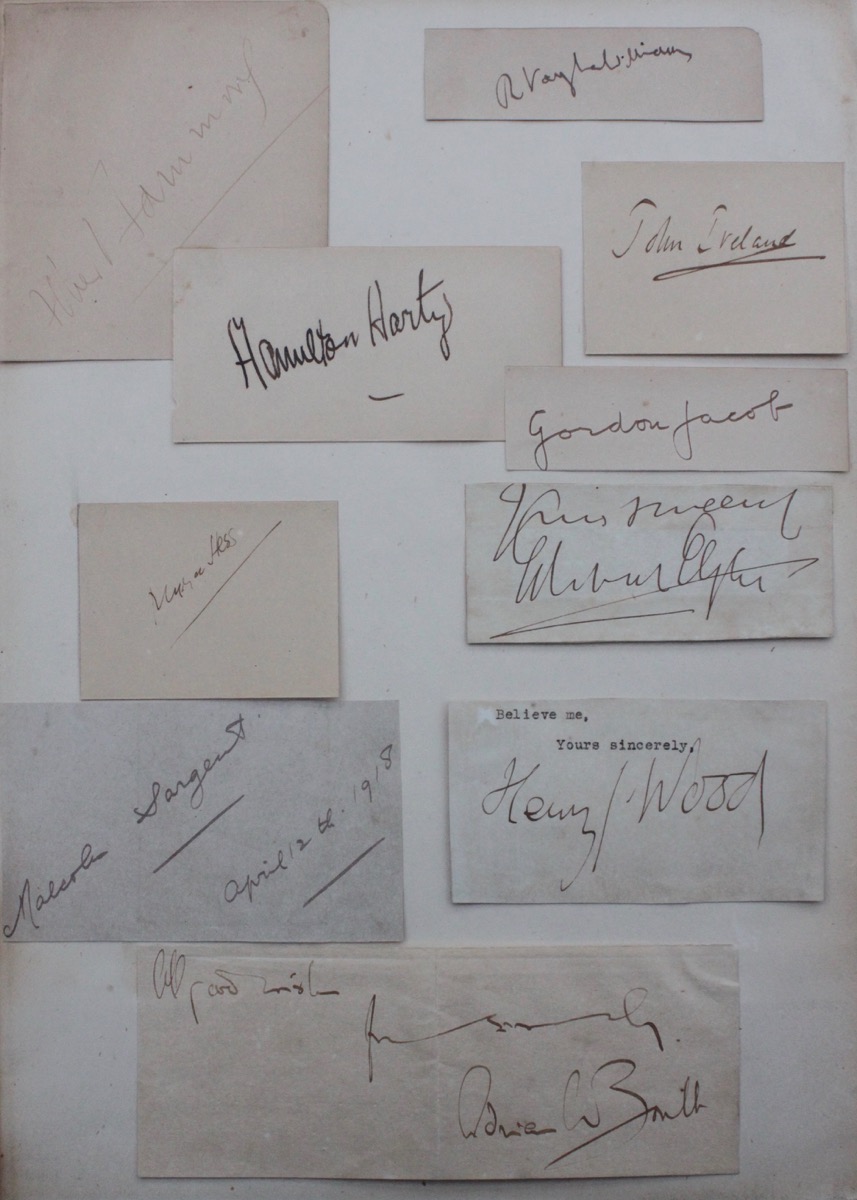 R Vaughan Williams
John Ireland
Hamilton Harty
Gordon Jacob
Yours sincerely
Edward Elgar
Myra Hess
Malcolm Sargent
April 12th. 1918
Believe me,
Yours sincerely,
Henry J. Wood
All good wishes
Yrs sincerely.
Adrian C Boult